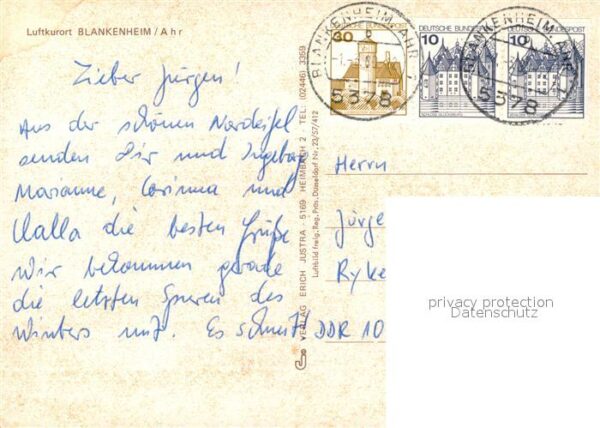 Luftkurort BLANKENHEIM / Ahr
Lieber Jürgen!
Aus der schönen Nordeifel
senden Dir und Ingeborg
Marianne, Corinna und
Kalla die besten Grüße
Wir bekommen gerade
die letzten Spuren des
Winters mit. Es schneit!
VERLAG ERICH JUSTRA 5169 HEIMBACH 2 TEL: (02446) 3359
Luftbild freig. Reg. Präs. Düsseldorf Nr. 23/57/412
30
DEUTSCHE BUNDESPOST
10
DEUTSCHE BUNDESPOST
10
BLANKENHEIM, AHR
5378
BLANKENHEIM, AHR
5378
Herrn
Jürge
Ryke
DDR 10
privacy protection
Datenschutz